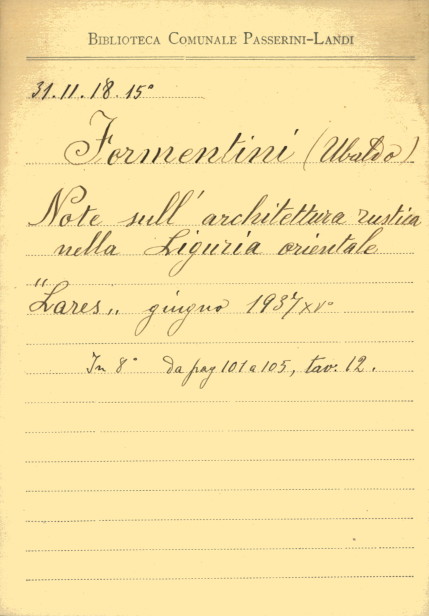 BIBLIOTECA COMUNALE PASSERINI-LANDI
31.11.18.15°
Formentini (Ubaldo)
Note sull'architettura rustica
nella Liguria orientale
"Lares„ giugno 1937 XV°
In 8° da pag 101 a 105, tav. 12.